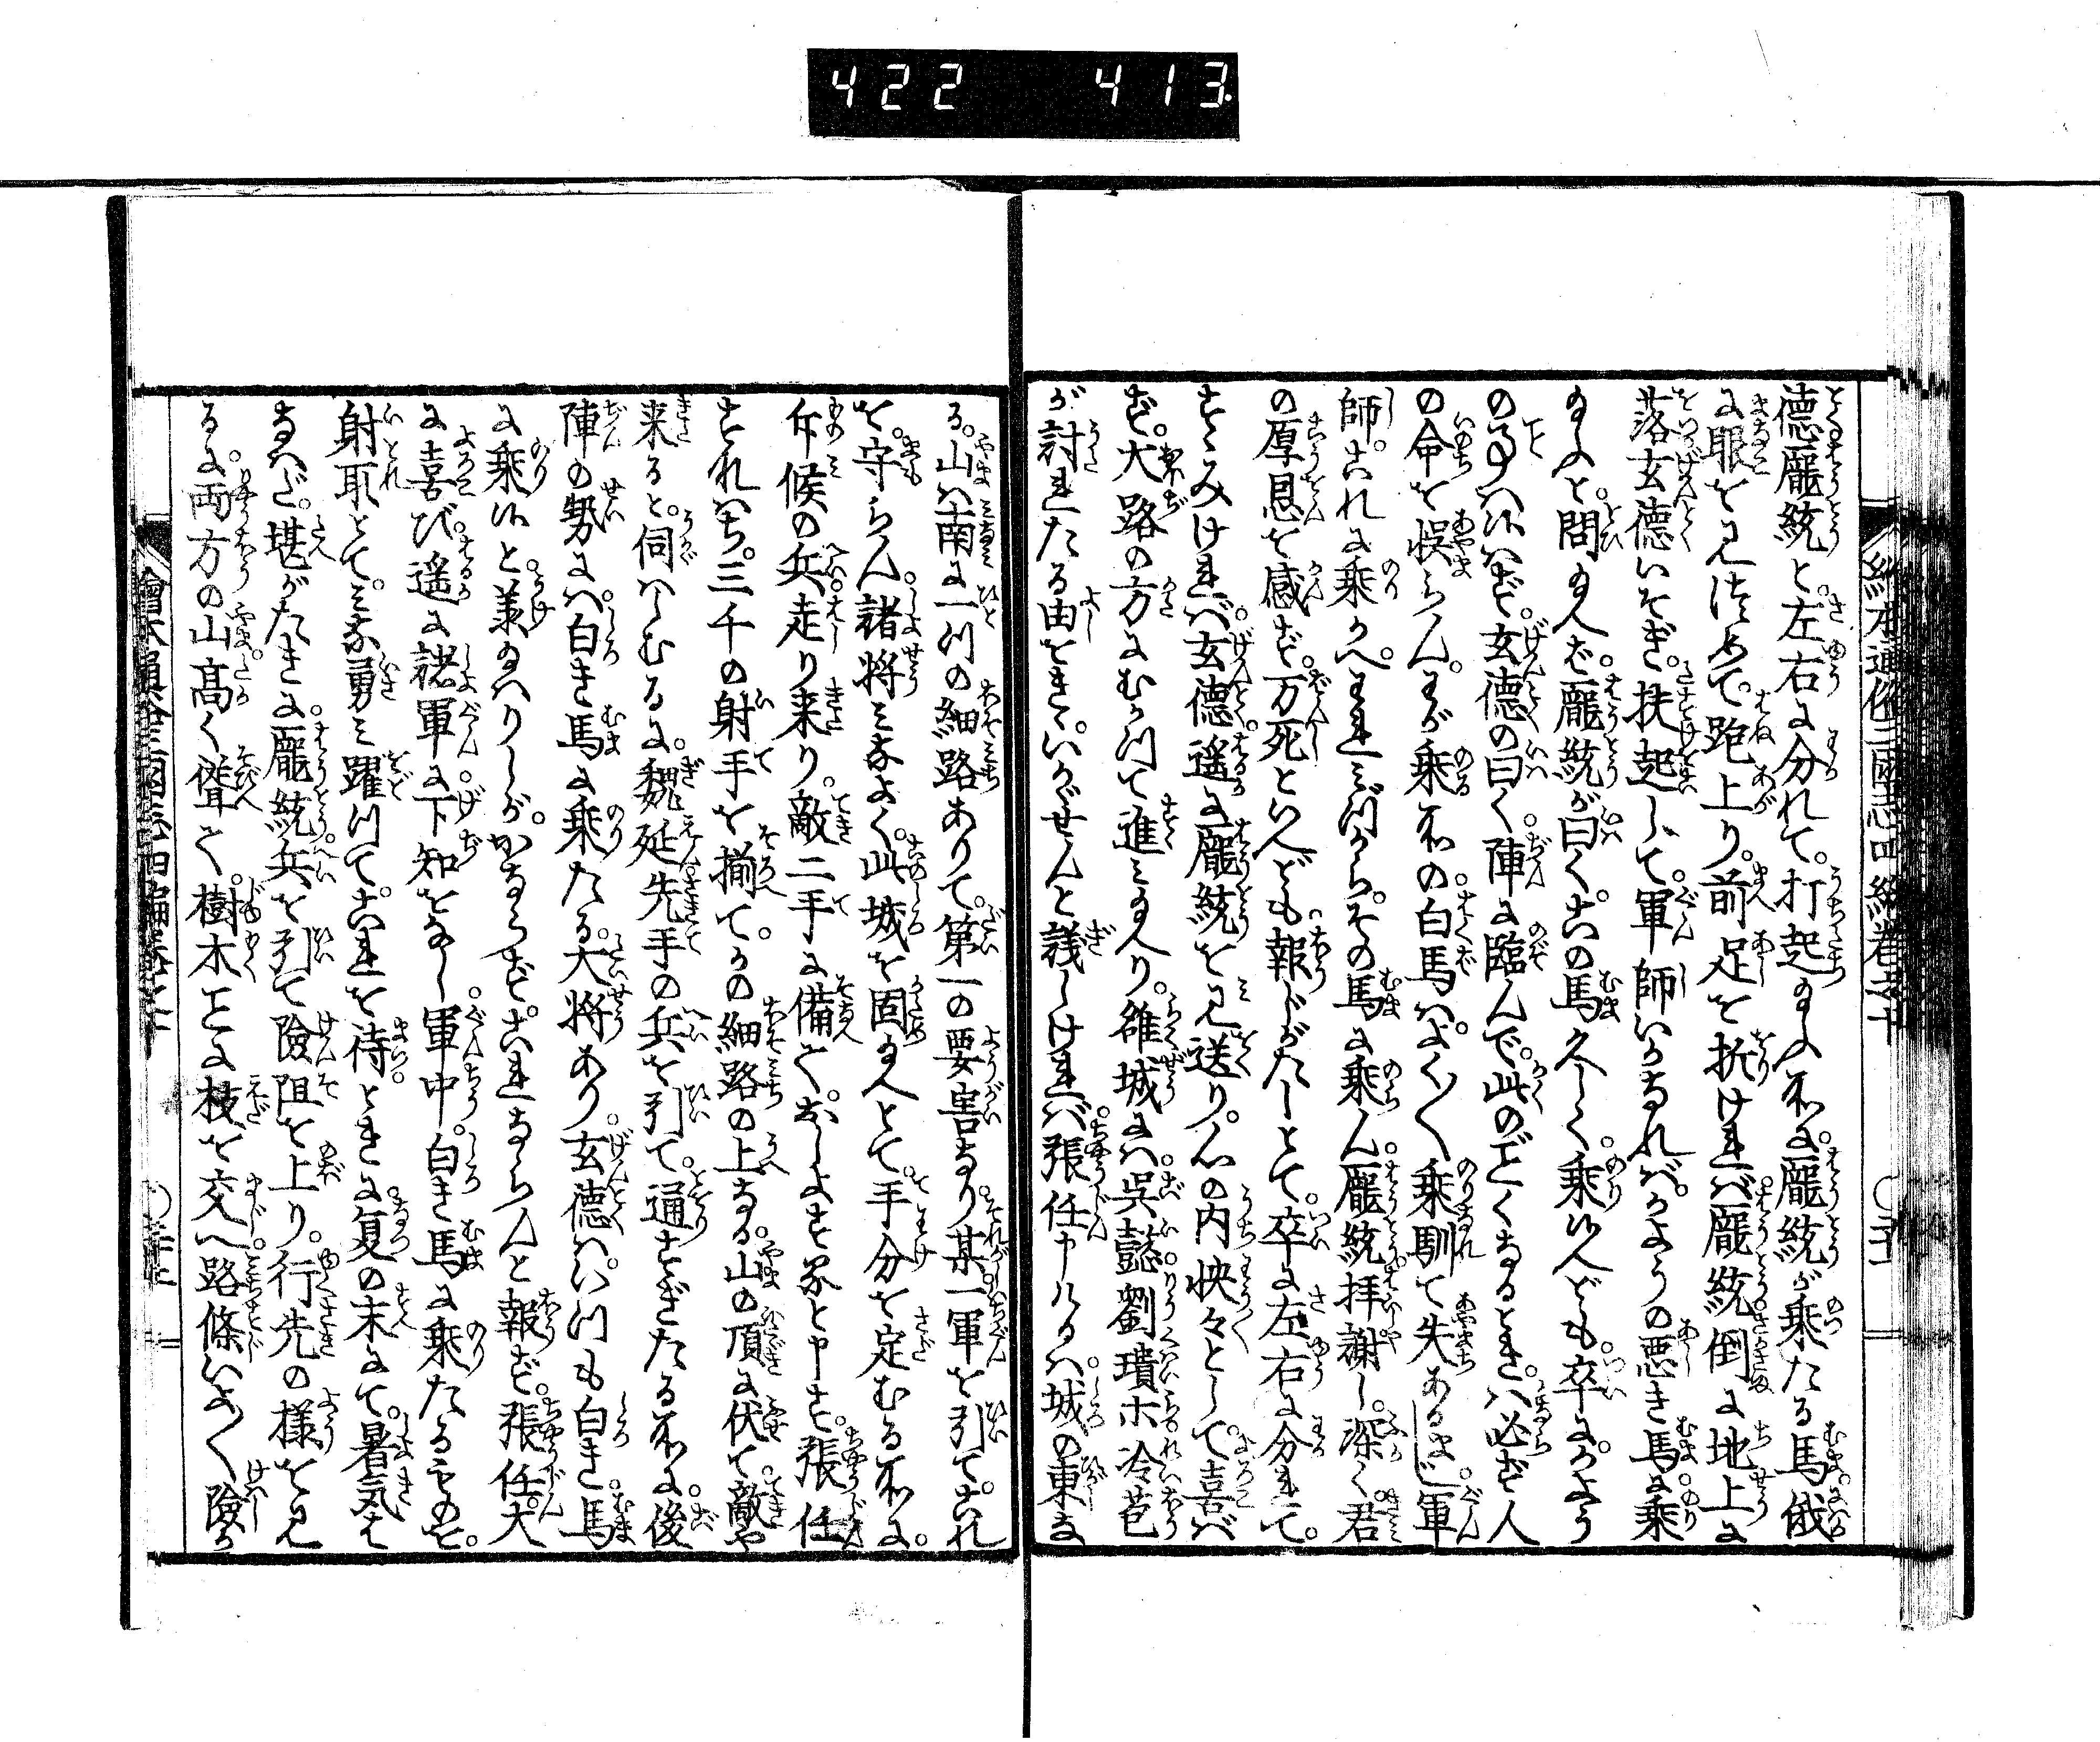 422 413
徳龐統と左右に分れて。打起給ふ所に。龐統が乗たる馬俄
に眼を見つめて。跑上り。前足を折ければ龐統倒に地上に
落玄徳いそぎ。扶起して。軍師いかなれば。かようの悪き馬に乗
給ふと。問給へば。龐統が曰く。此の馬久しく。乗候へども。卒に。かよう
の事ハ候ハず。玄徳の曰く。陣に臨んで。此のごとくなるときハ必ず人
の命を悞らん。わが乗所の白馬ハよく〳〵乗馴て失あるまじ。軍
師。これに乗かへ。われミづから。その馬に乗ん。龐統拝謝し。深く君
の厚恩を感ず。万死といへども報じがたしとて。卒に左右に分れて。
すゝみければ。玄徳遥に龐統を見送り。心の内怏々として。喜ば
ず。大路の方にむかつて進ミ給へり。雒城にハ呉懿劉璝ホ冷苞
が討れたる由をきゝ。いかゞせんと議しければ。張任申けるハ。城の東な
る。山ハ南に一ツの細路ありて。第一の要害なり某一軍を引て。これ
を。守らん。諸将ミなよく。此城を固給へとて。手分を定むる所に。
斥候の兵走り来り。敵二手に備へて。おしよせ候と申す。張任
すハわち。三千の射手を揃て。かの細路の上なる。山の頂に伏て敵や
来ると。伺ハしむるに。魏延先手の兵を引て。通すぎたる所に後
陣の勢にハ白き馬に乗たる大将あり。玄徳ハいつも白き馬
に乗候と。兼給ハりしが。かならず。これならんと報ず。張任大
に喜び。遥に諸軍に下知をなし軍中。白き馬に乗たるものを。
射取とて。ミな勇ミ躍つて。これを待ときに夏の末にて。暑気は
なハだ。堪がたきに龐統兵を引て険阻を上り。行先の様を見
るに。両方の山高く聳て。樹木しげに枝を交へ路條いよ〳〵険か
繪本通俗三國志四編巻之十